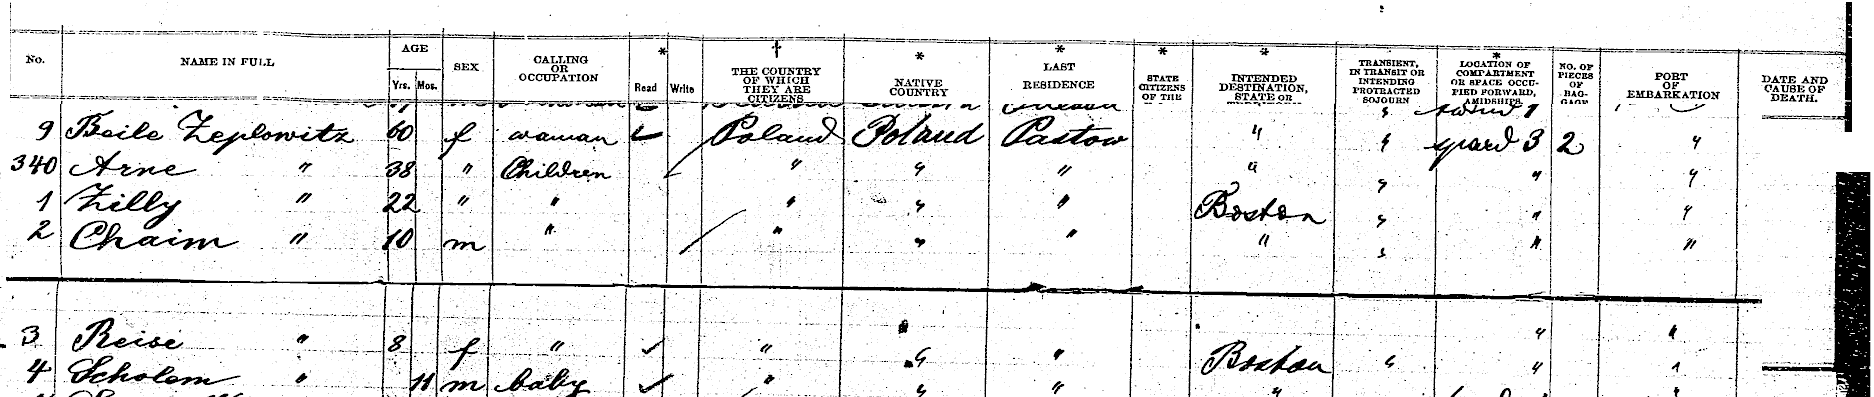 No. NAME IN FULL AGE Yrs. Mos. SEX CALLING OR OCCUPATION * Read Write † THE COUNTRY OF WHICH THEY ARE CITIZENS * NATIVE COUNTRY * LAST RESIDENCE * STATE CITIZENS OF THE * INTENDED DESTINATION, STATE OR TRANSIENT, IN TRANSIT OR INTENDING PROTRACTED SOJOURN * LOCATION OF COMPARTMENT OR SPACE OCCUPIED FORWARD, AMIDSHIPS, NO. OF PIECES OF BAGGAGE PORT OF EMBARKATION DATE AND CAUSE OF DEATH.
9 Beile Zeplowitz 60 f woman ✓ Poland Poland Pastow " " 3 2 "
340 Arne " 38 " Children " " " " " " "
1 Zilly " 22 " " " " " Boston " " "
2 Chaim " 10 m " " " " " " " "
3 Reise " 8 f " ✓ " " " Boston " " "
4 Scholem " 11 m baby ✓ " " " " "